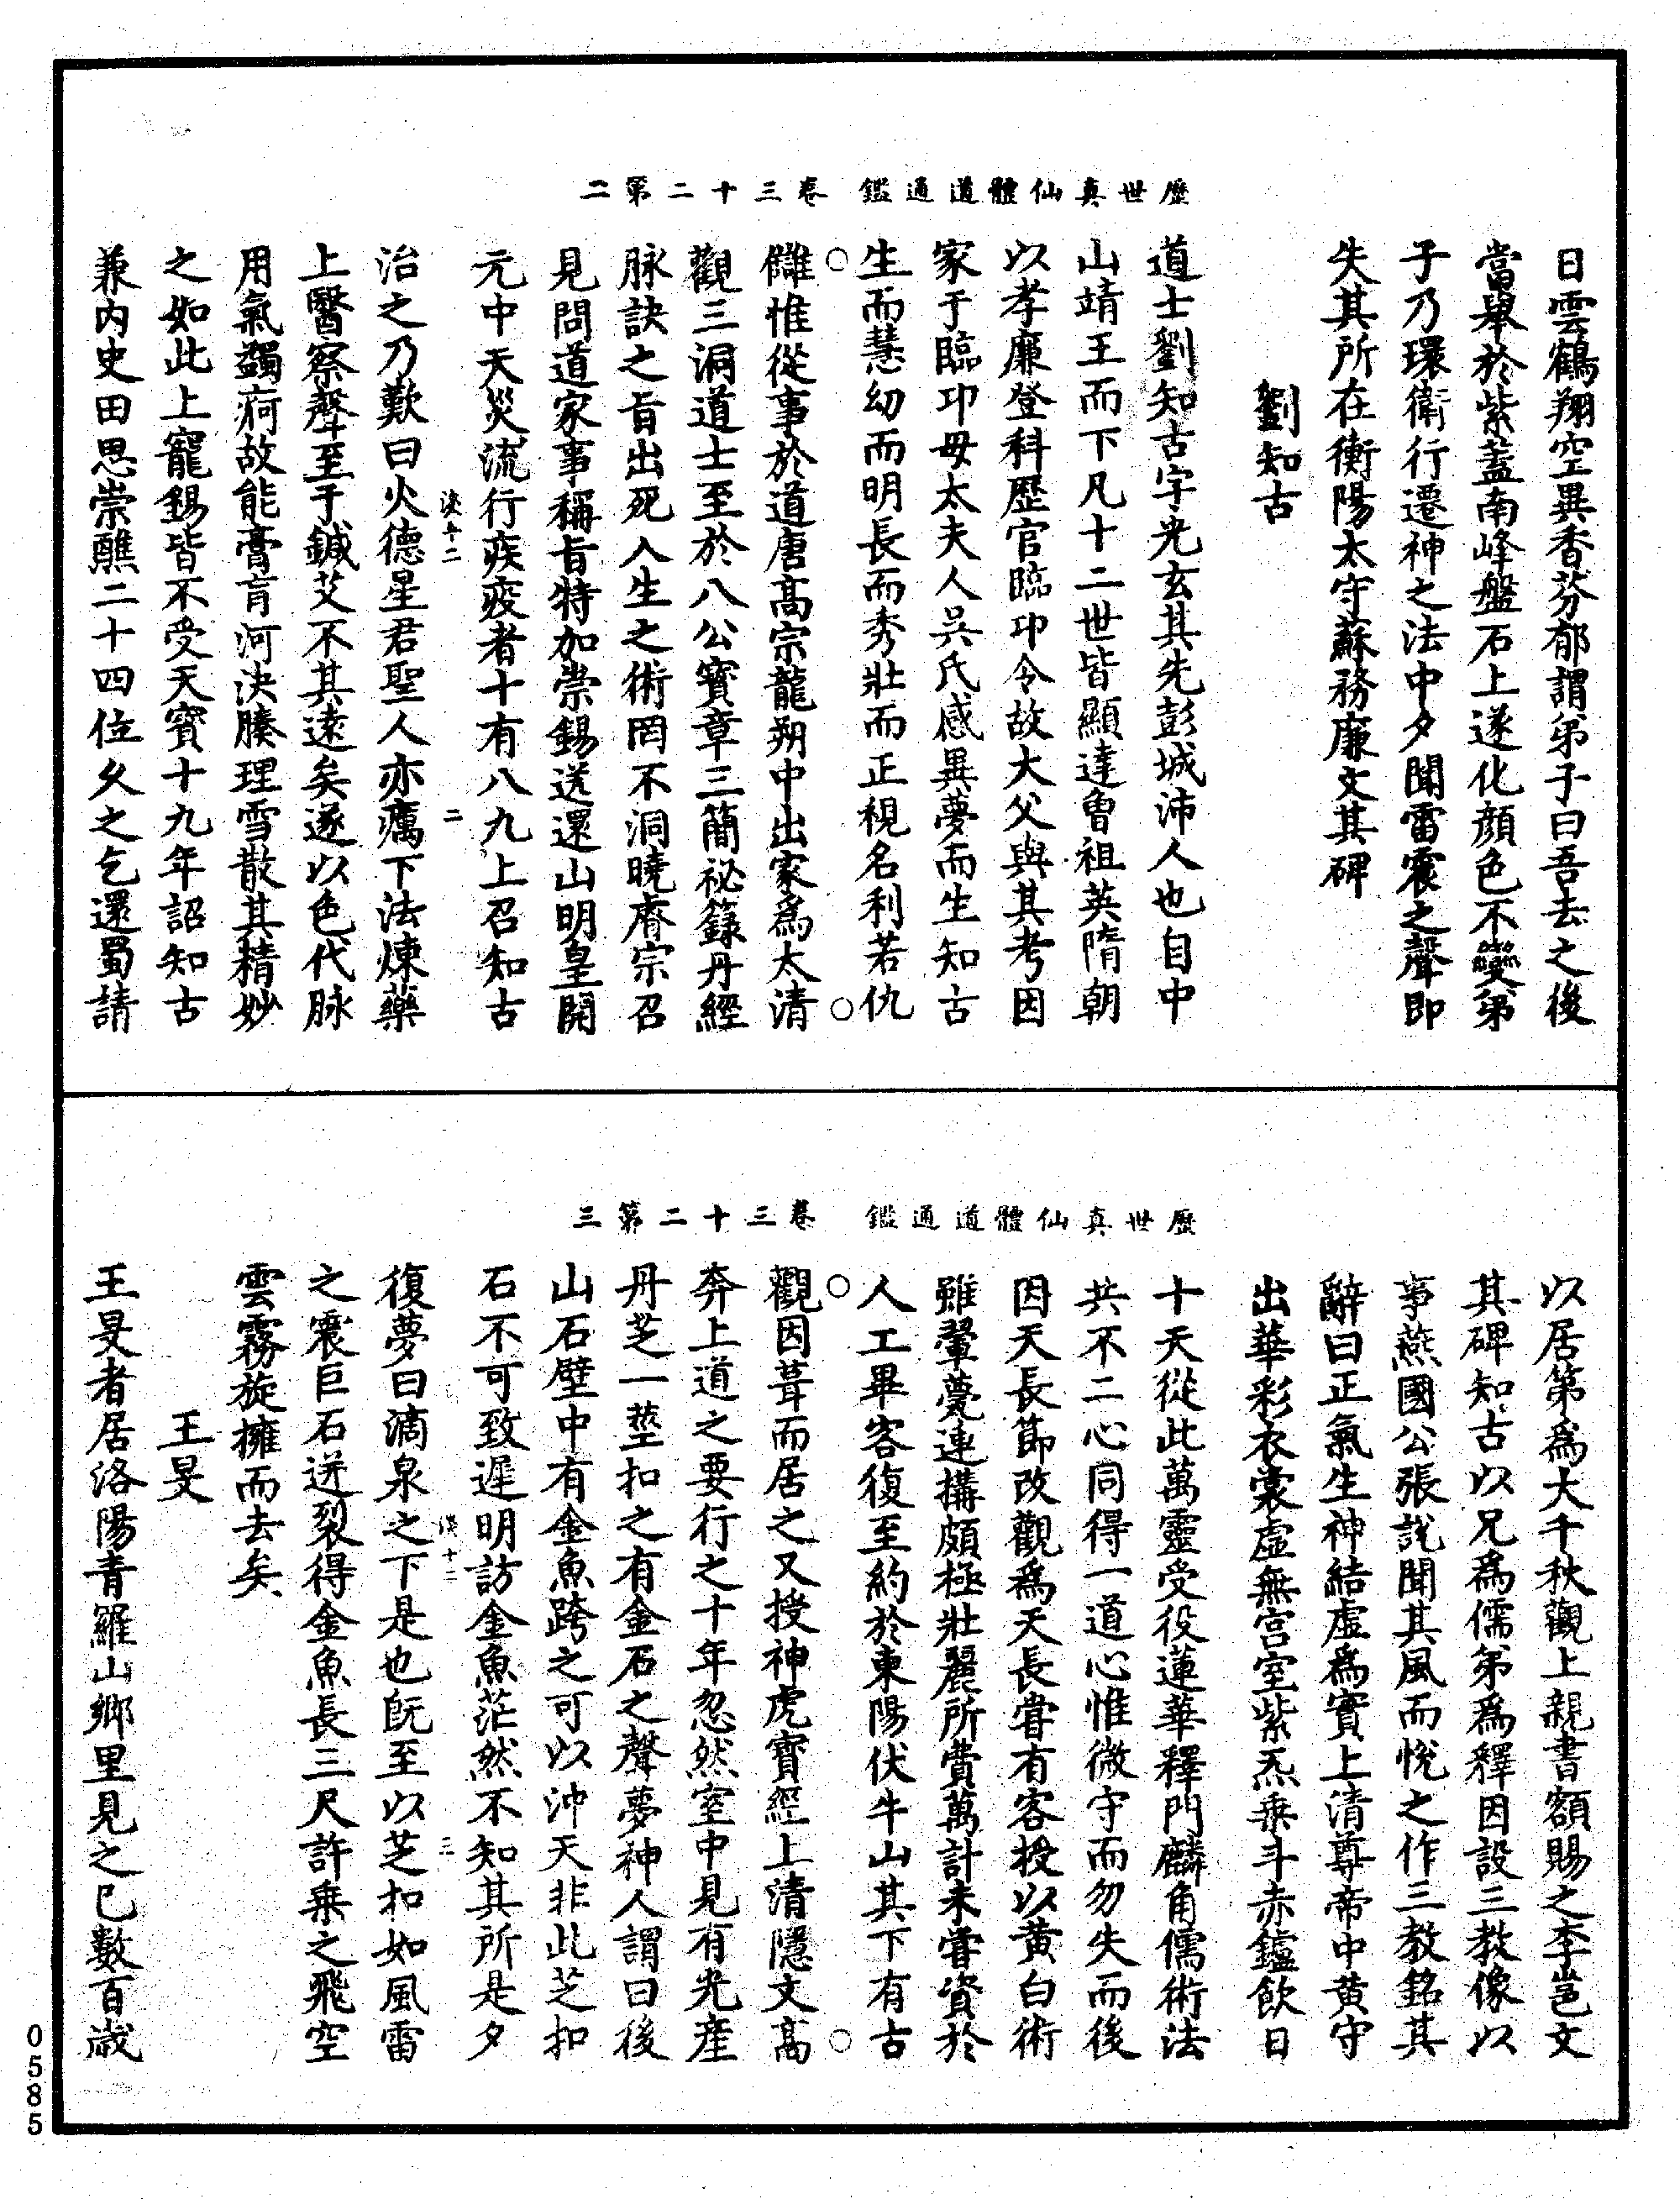 歷世真仙體道通鑑　卷三十二第二
日雲鶴翔空異香芬郁謂弟子曰吾去之後
當舉於紫蓋南峰盤石上遂化顏色不變弟
子乃環衛行遷神之法中夕聞雷震之聲即
失其所在衡陽太守蘇務廉文其碑
劉知古
道士劉知古字光玄其先彭城沛人也自中
山靖王而下凡十二世皆顯達曾祖英隋朝
以孝廉登科歷官臨邛令故大父與其考因
家于臨邛毋太夫人吳氏感異夢而生知古
生而慧幼而明長而秀壯而正視名利若仇
讎惟從事於道唐高宗龍朔中出家爲太清
觀三洞道士至於八公寶章三簡祕籙丹經
脉訣之旨出死入生之術罔不洞曉睿宗召
見問道家事稱旨特加崇錫送還山明皇開
元中天災流行疾疫者十有八九上召知古
治之乃歎曰火德星君聖人亦癘下法煉藥
上醫察聲至于鍼艾不其遠矣遂以色代脉
用氣蠲疴故能膏肓河決腠理雪散其精妙
之如此上寵錫皆不受天寶十九年詔知古
兼內史田思崇醮二十四位久之乞還蜀請
歷世真仙體道通鑑　卷三十二第三
以居第爲大千秋觀上親書額賜之李邕文
其碑知古以兄爲儒弟爲釋因設三教像以
事燕國公張說聞其風而悅之作三教銘其
辭曰正氣生神結虛爲實上清尊帝中黃守
出華彩衣裳虛無宮室紫炁乘斗赤鑪飲日
十天從此萬靈受役蓮華釋門麟角儒術法
共不二心同得一道心惟微守而勿失而後
因天長節改觀爲天長嘗有客授以黃白術
雖翬甍連搆頗極壯麗所費萬計未嘗資於
人工畢客復至約於東陽伏牛山其下有古
觀因葺而居之又授神虎寶經上清隱文高
奔上道之要行之十年忽然室中見有光產
丹芝一莖扣之有金石之聲夢神人謂曰後
山石壁中有金魚跨之可以沖天非此芝扣
石不可致遲明訪金魚茫然不知其所是夕
復夢曰滴泉之下是也既至以芝扣如風雷
之震巨石迸裂得金魚長三尺許乘之飛空
雲霧旋擁而去矣
王旻
王旻者居洛陽青羅山鄉里見之已數百歲
0585